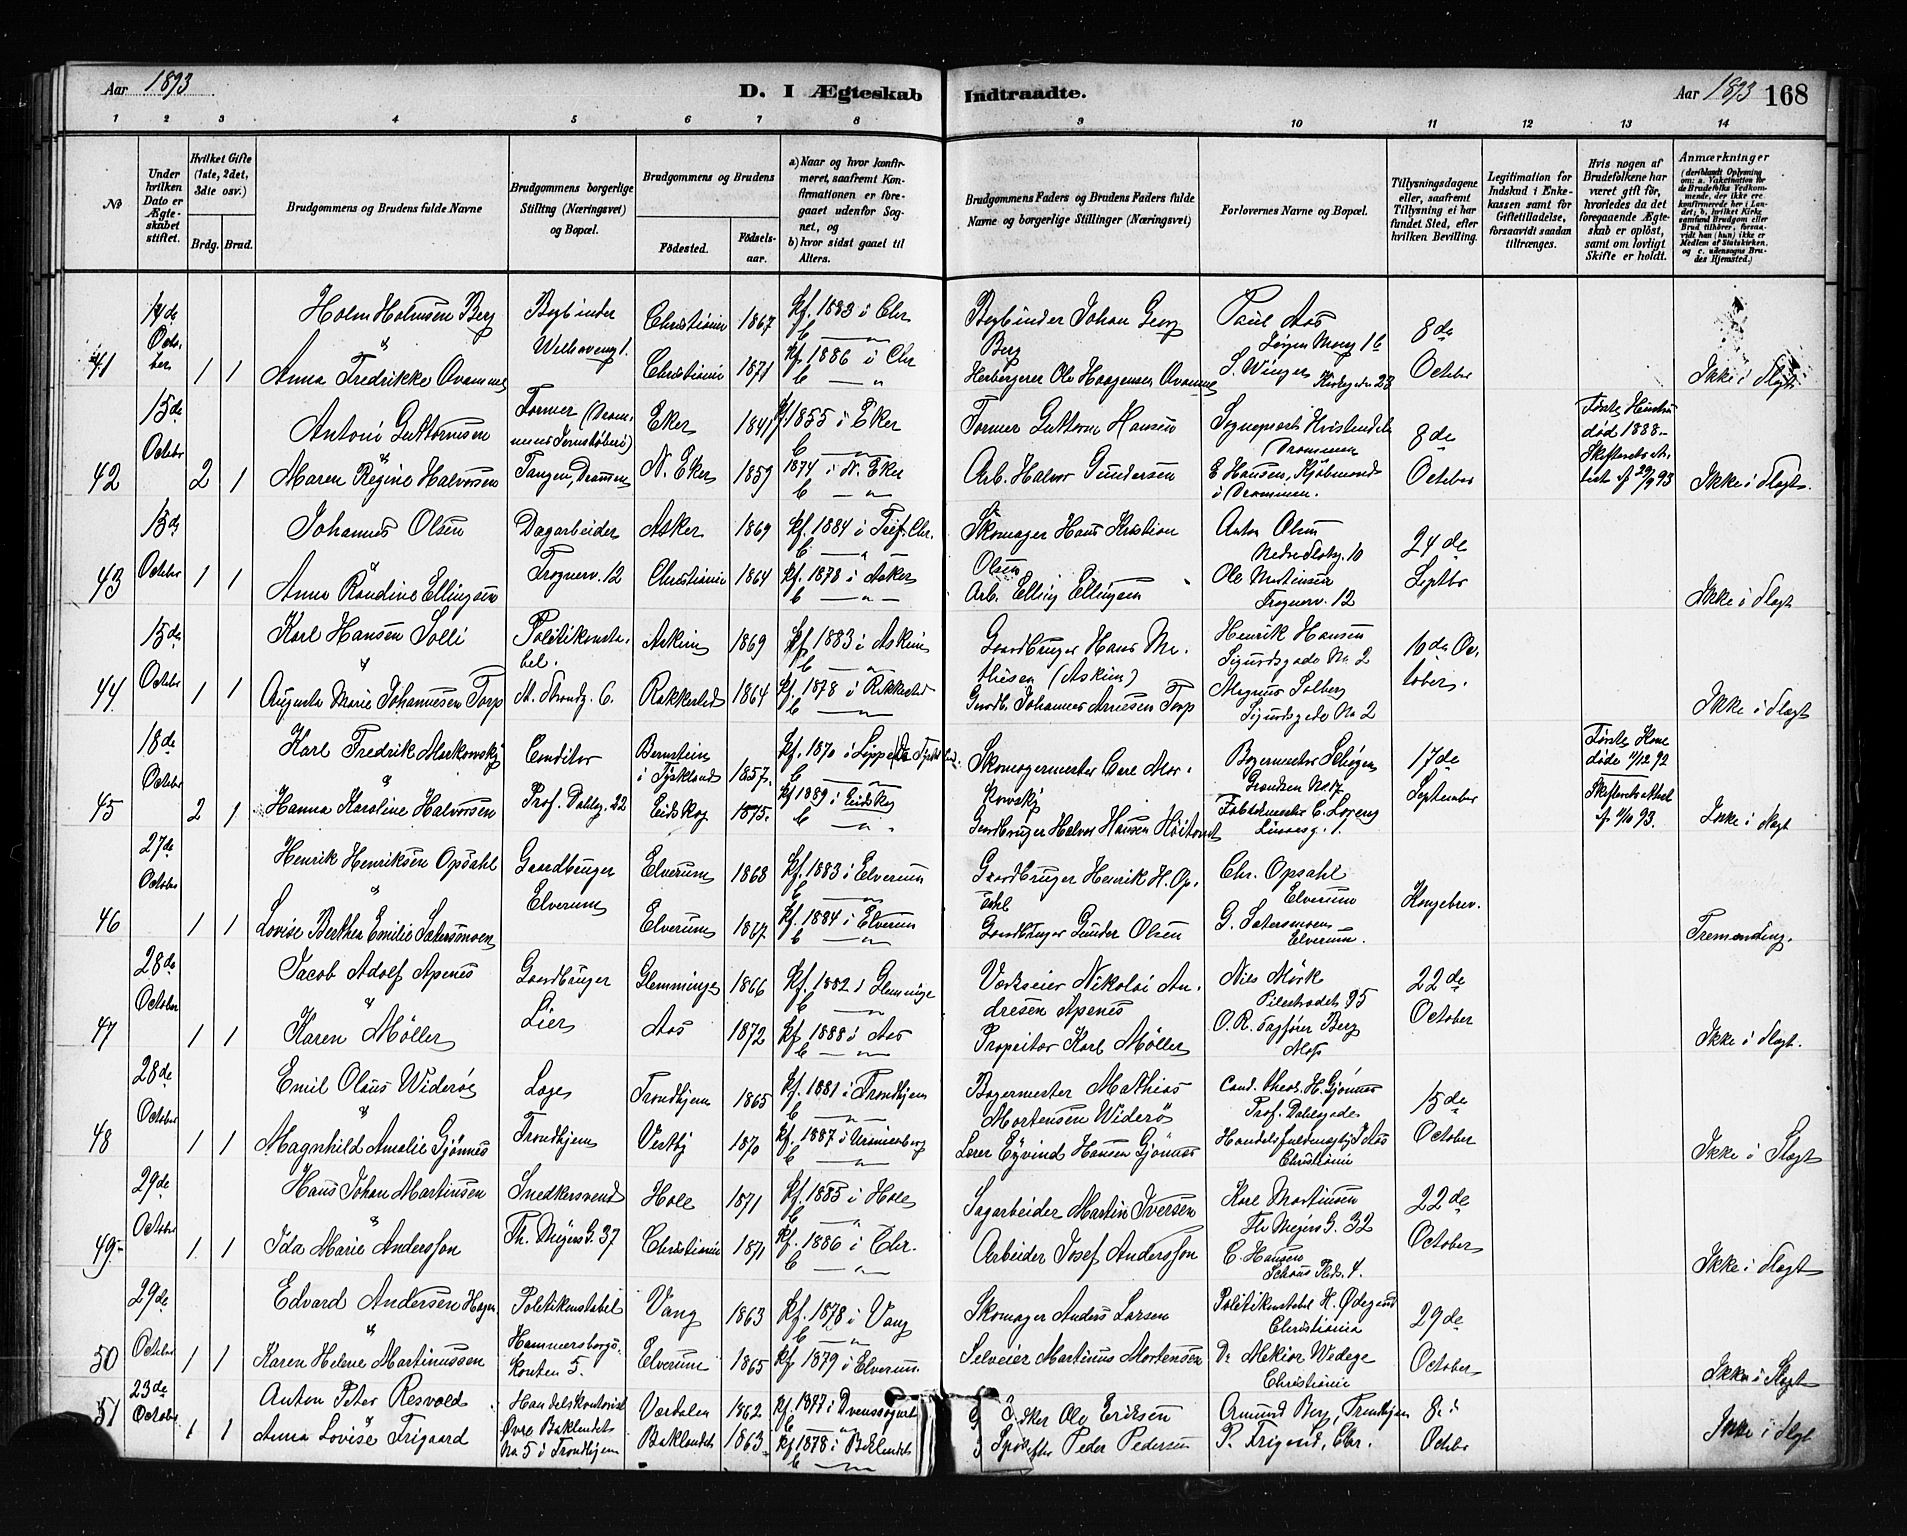 Aar 1893
D. I Ægteskab Indtraadte.
Aar 1893 168
1 2 3 4 5 6 7 8 9 10 11 12 13 14
No
Under hvilken Dato er Ægteskabet stiftet.
Hvilket Gifte (1ste, 2det, 3die osv.)
Brdg. Brud.
Brudgommens og Brudens fulde Navne
Brudgommens borgerlige Stilling (Næringsvei) og Bopæl.
Brudgommens og Brudens
Fødested.
Fødselsaar.
a) Naar og hvor konfirmeret, saafremt Konfirmationen er foregaaet udenfor Sognet, og
b) hvor sidst gaaet til Alters.
Brudgommens Faders og Brudens Faders fulde Navne og borgerlige Stillinger (Næringsvei)
Forlovernes Navne og Bopæl.
Tillysningsdagene eller, saafremt Tillysning ei har fundet Sted, efter hvilken Bevilling.
Legitimation for Indskud i Enkekassen samt for Giftetilladelse, forsaavidt saadan tiltrænges.
Hvis nogen af Brudefolkene har været gift før, hvorledes da det foregaaende Ægteskab er opløst, samt om lovligt Skifte er holdt.
Anmærkninger
(deriblandt Oplysning om: a. Vaksination for de Brudefolks Vedkommende, der ikke ere konfirmerede her i Landet; b. hvilket Kirkesamfund Brudgom eller Brud tilhører, forsaavidt han (hun) ikke er Medlem af Statskirken, og c. udensogns Brudes Hjemsted.)
41 14de October 1 1
Holm Holmsen Berg Bogbinder Christiania 1867 kf. 1883 i Chr
& Welhavensg 1.
Anna Fredrikke Christiania 1871 kf 1886 i Chr
Bogbinder Johan Georg Berg
Herbergerer Ole Haagensen
Paul Aas
S. Winger Kirkegaden 28
8de October
Ikke i Slægt
42 15de October 2 1
Antoni Guttormsen Former Eker kf 1855 i Eker
&
Maren Regine Halvorsen Tangen, Drammen N. Eker 1859 1874 i N. Eker
Former Guttorm Hansen
Arb. Halvor Gundersen
Drammen
E Hansen, Kjøbmand i Drammen.
8de October
Første Hustru død 1888.
Skifteretsattest af 29/9 93
Ikke i Slægt.
43 October 1 1
Johannes Olsen Dagarbeider Asker 1869 kf. 1884 i Chr.
& Frognerv. 12
Anna Randine Ellingsen Christiania 1864 kf. 1878 i Asker
Skomager Hans Kristian Olsen
Arb. Elling Ellingsen
Anton Olsen
Nedre Slotsg. 10
Ole Martinsen
Frognerv. 12
24de Septbr
Ikke i Slægt
44 15de October 1 1
Karl Hansen Solli Politikonstabel. Askim 1869 kf. 1883 i Askim
&
Augusta Marie Johannesen Torp Rakkestad 1864 kf. 1878 i Rakkestad
Gaardbruger Hans Mathisen (Askim)
Gaardb. Johannes Arnesen Torp
Henrik Hansen
Sigurdsgade No 2
Magnus Solberg
Sigurdsgade No 2
October.
Ikke i Slægt
45 18de October 2 1
Karl Fredrik Markowsky Conditor Bernstein i Tydskland 1857.
&
Hanna Karoline Halvorsen Prof. Dahlsg. 22 Eidskog 1875. kf 1889 i Eidskog
Skomagermester
Gaardbruger Halvor Hansen
17de September
Første Kone døde 11/12 92
Ikke i Slægt
46 27de October 1 1
Henrik Henriksen Opsahl Gaardbruger Elverum 1868 kf. 1883 i Elverum
& Elverum
Lovise Berthea Emilie Sætersmoen Elverum 1867 kf. 1884 i Elverum
Gaardbruger Henrik H. Opsahl
Gaardbruger Gunder Olsen
Chr. Opsahl
Elverum
G. Sætersmoen
Elverum.
Kongebrev.
47 28de October 1 1
Jacob Adolf Apenes Gaardbruger Glemminge 1866 kf. 1882 i Glemminge
& Lier
Karen Møller Aas 1872 kf. 1888 i Aas
Værkseier Nikolai Andresen Apenes
Propritær Karl Møller
Nils Mørk
Pilestrædet 95
O. R. Sagfører Berg
Moss
22de October
Ikke i Slægt.
48 28de October 1 1
Emil Olaus Widerøe Læge Trondhjem 1865 kf. 1881 i Trondhjem
& Trondhjem
Magnhild Amalie Gjønnes Vestby 1870 kf. 1887 i
Bagermester Mathias Mortensen Widerøe
Lærer Eyvind Hansen Gjønnes
Cand. theol. H. Gjønnes
Prof. Dahlsgade
Christiania
15de October
Ikke i Slægt
49 29de October 1 1
Hans Johan Martinsen Snedkersvend Hole 1871 kf. 1885 i Hole
& Th. Meyers G. 37
Ida Marie Andersson Christiania 1871 kf. 1886 i Chr.
Sagarbeider Martin Iversen
Arbeider Josef Andersson
Karl Martinsen
Th Meyers G. 32
C. Hansen
Schous Plads. 4.
22de October
Ikke i Slægt
50 29de October 1 1
Edvard Andersen Hagen Politikonstabel Vang 1863 kf. 1878 i Vang
& Hammersborgs
Karen Helene Martinussen 5. Elverum 1865 kf 1879 i Elverum
Skomager Anders Larsen
Selveier Martinus Mortensen
Politikonstabel H. Ødegaard
Christiania
Dr Mekior Wedege
Christiania
29de October
Ikke i Slægt
51 23de October 1 1
Anton Peter Resvold Handelskontorist Værdalen 1862
& Øvre Baklandet
Anna Lovise Frigaard No 5 i Trondhjem Baklandet 1863 kf 1878 i Baklandet
Ole Eriksen
Peder Pedersen
Amund Berg, Trondhjem
P. Frigaard, Chr.
8de Octbr
Ikke i Slægt